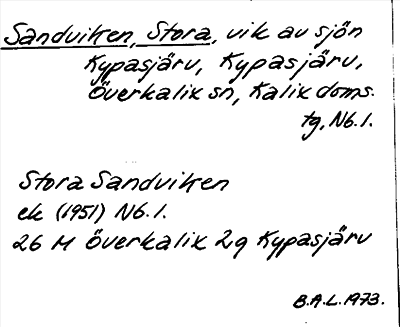 Sandviken, Stora, vik av sjön
Kypasjärv, Kypasjärv,
Överkalix sn, Kalix doms.
tg, Nb. l.
Stora Sandviken
ek (1951) Nb. l.
26 M Överkalix 2g Kypasjärv
B.A.L. 1973.